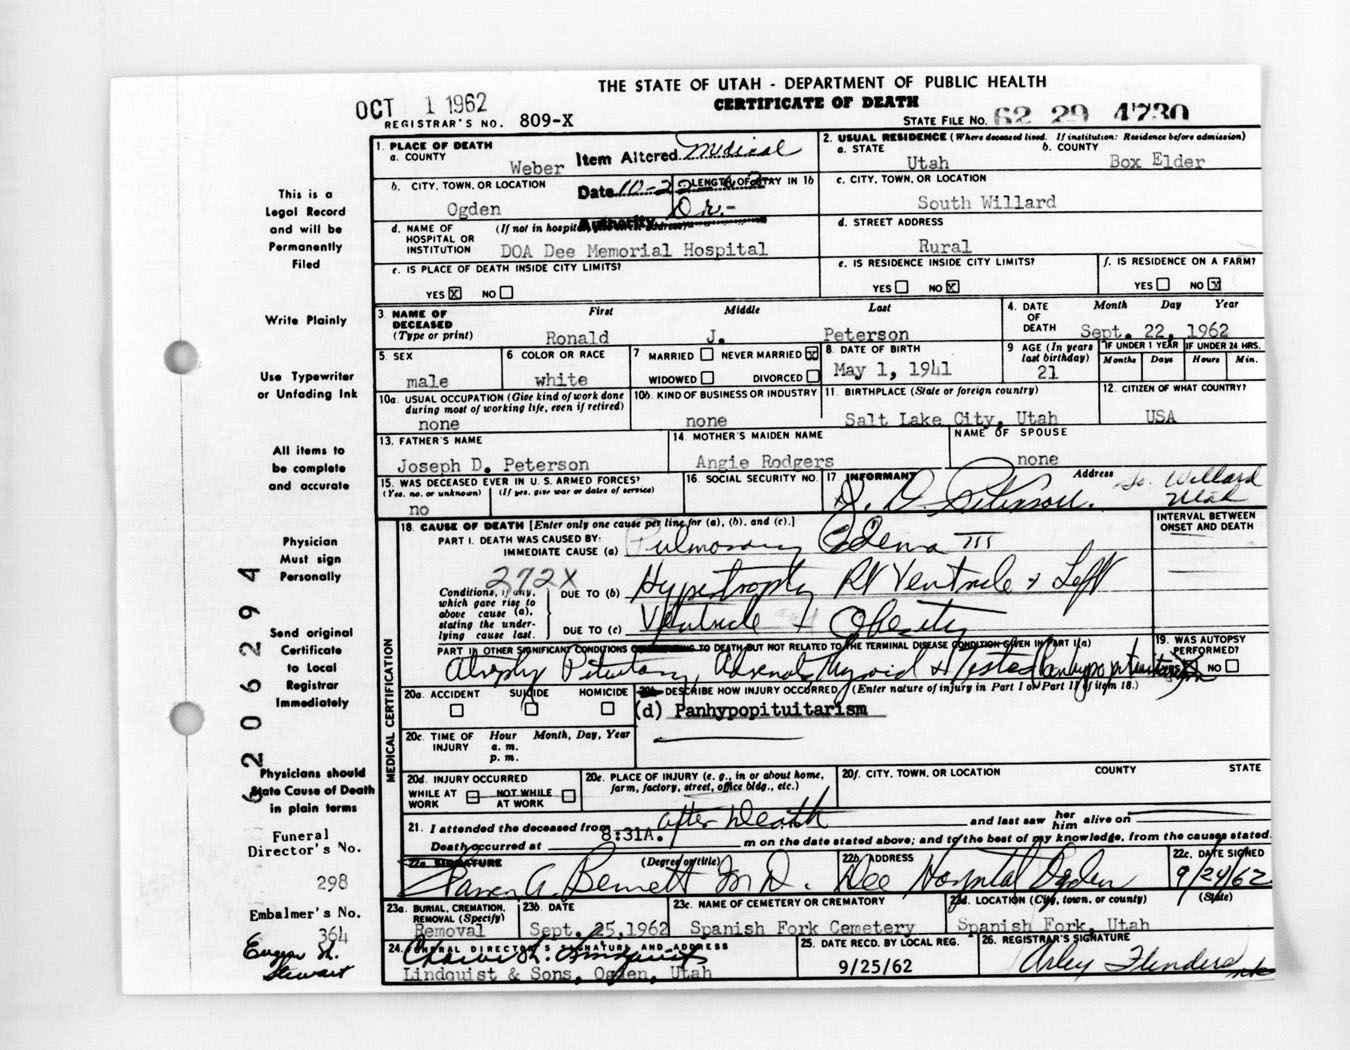 THE STATE OF UTAH - DEPARTMENT OF PUBLIC HEALTH
OCT 1 1962
CERTIFICATE OF DEATH
REGISTRAR'S NO. 809-X
STATE FILE NO. 62 29 4730
1. PLACE OF DEATH
a. COUNTY
Weber
Item Altered Medical
2. USUAL RESIDENCE (Where deceased lived. If institution: Residence before admission)
a. STATE
Utah
b. COUNTY
Box Elder
b. CITY, TOWN, OR LOCATION
Ogden
Date
LENGTH OF STAY IN 1b
Dr.-
Authority
c. CITY, TOWN, OR LOCATION
South Willard
d. NAME OF HOSPITAL OR INSTITUTION
(If not in hospital,
DOA Dee Memorial Hospital
d. STREET ADDRESS
Rural
e. IS PLACE OF DEATH INSIDE CITY LIMITS?
YES X NO
e. IS RESIDENCE INSIDE CITY LIMITS?
YES NO X
f. IS RESIDENCE ON A FARM?
YES NO X
3 NAME OF DECEASED (Type or print)
First Middle Last
Ronald J. Peterson
4. DATE OF DEATH
Month Day Year
Sept. 22, 1962
5. SEX
male
6 COLOR OR RACE
white
7 MARRIED NEVER MARRIED X
WIDOWED DIVORCED
8. DATE OF BIRTH
May 1, 1941
9 AGE (In years last birthday)
21
IF UNDER 1 YEAR
Months Days
IF UNDER 24 HRS.
Hours Min.
10a. USUAL OCCUPATION (Give kind of work done during most of working life, even if retired)
none
10b. KIND OF BUSINESS OR INDUSTRY
none
11. BIRTHPLACE (State or foreign country)
Salt Lake City, Utah
12. CITIZEN OF WHAT COUNTRY?
USA
13. FATHER'S NAME
Joseph D. Peterson
14. MOTHER'S MAIDEN NAME
Angie Rodgers
NAME OF SPOUSE
none
15. WAS DECEASED EVER IN U. S. ARMED FORCES?
(Yes, no, or unknown) (If yes, give war or dates of service)
no
16. SOCIAL SECURITY NO.
17. INFORMANT
J. D. Peterson.
Address
So. Willard
Utah
18. CAUSE OF DEATH [Enter only one cause per line for (a), (b), and (c).]
PART I. DEATH WAS CAUSED BY:
IMMEDIATE CAUSE (a) Pulmonary Edema III
INTERVAL BETWEEN ONSET AND DEATH
272X
Conditions, if any, which gave rise to above cause (a), stating the underlying cause last.
DUE TO (b) Hypertrophy Rt Ventricle + Left
DUE TO (c) Ventricle + Obesity
PART II. OTHER SIGNIFICANT CONDITIONS TO DEATH BUT NOT RELATED TO THE TERMINAL DISEASE CONDITION GIVEN IN PART I(a)
Atrophy Pituitary, Adrenals, Thyroid + Testes (panhypopituitarism
19. WAS AUTOPSY PERFORMED?
NO
20a. ACCIDENT SUICIDE HOMICIDE
20b. DESCRIBE HOW INJURY OCCURRED. (Enter nature of injury in Part I or Part II of item 18.)
(d) Panhypopituitarism
20c. TIME OF INJURY
Hour Month, Day, Year
a. m.
p. m.
20d. INJURY OCCURRED
WHILE AT WORK NOT WHILE AT WORK
20e. PLACE OF INJURY (e. g., in or about home, farm, factory, street, office bldg., etc.)
20f. CITY, TOWN, OR LOCATION COUNTY STATE
21. I attended the deceased from after death and last saw her him alive on
Death occurred at 8:31A. m on the date stated above; and to the best of my knowledge, from the causes stated.
22a. SIGNATURE (Degree or title)
Bennett M.D.
22b. ADDRESS
Dee Hospital Ogden
22c. DATE SIGNED
9/24/62
23a. BURIAL, CREMATION, REMOVAL (Specify)
Removal
23b. DATE
Sept. 25, 1962
23c. NAME OF CEMETERY OR CREMATORY
Spanish Fork Cemetery
23d. LOCATION (City, town, or county) (State)
Spanish Fork, Utah
24. FUNERAL DIRECTOR'S SIGNATURE AND ADDRESS
Lindquist & Sons, Ogden, Utah
25. DATE RECD. BY LOCAL REG.
9/25/62
26. REGISTRAR'S SIGNATURE
Arley Flinders
MEDICAL CERTIFICATION
This is a
Legal Record
and will be
Permanently
Filed
Write Plainly
Use Typewriter
or Unfading Ink
All items to
be complete
and accurate
Physician
Must sign
Personally
Send original
Certificate
to Local
Registrar
Immediately
Physicians should
State Cause of Death
in plain terms
Funeral
Director's No.
298
Embalmer's No.
364
Eugene H.
Stewart
62 206294